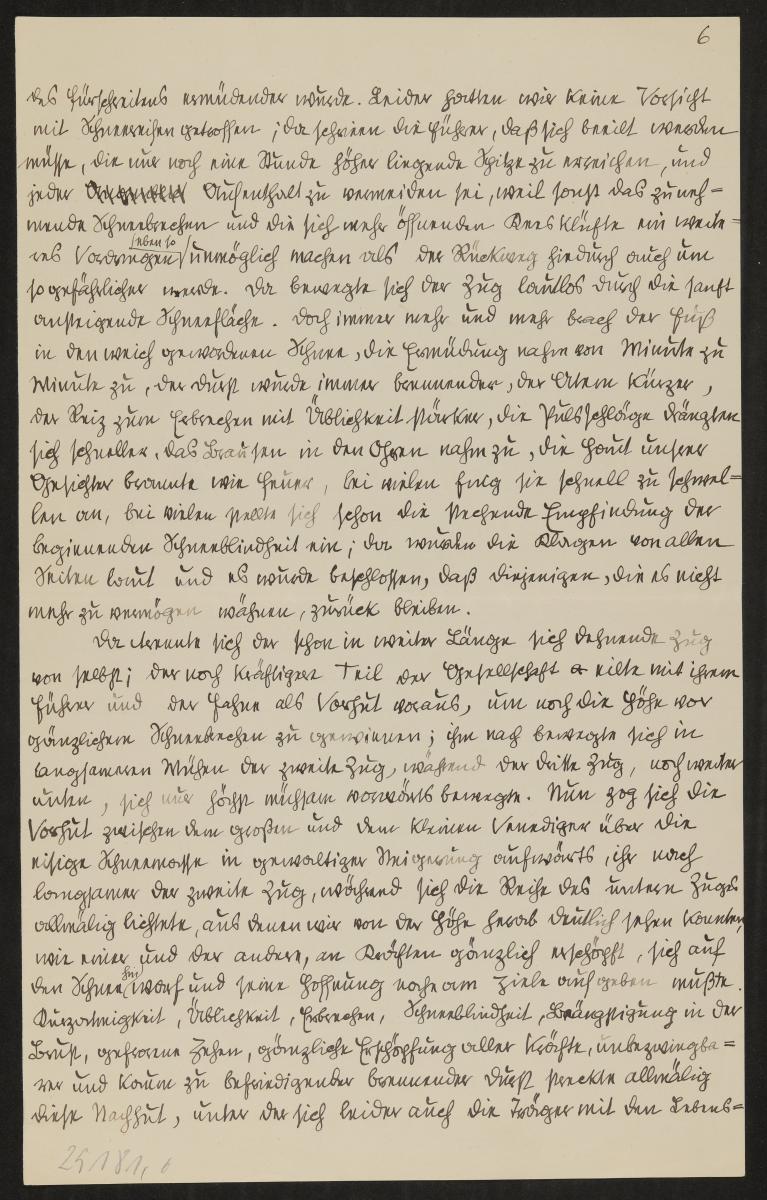 6
des Fürschreitens ermüdender wurde. Leider hatten wir keine Vorsicht
mit Schneereifen getroffen; da schrieen die Führer, daß sich beeilt werden
müsse, die nur noch eine Stunde höher liegende Spitze zu erreichen, und
jeder Aufenthalt zu vermeiden sei, weil sonst das zuneh=
mende Schneebrechen und die sich mehr öffnenden Keesklüfte ein weite=
res Vordringen ebenso unmöglich machen als der Rückweg hiedurch auch um
so gefährlicher werde. Da bewegte sich der Zug lautlos durch die sanft
ansteigende Schneefläche. Doch immer mehr und mehr brach der Fuß
in den weich gewordenen Schnee, die Ermüdung nahm von Minute zu
Minute zu, der Durst wurde immer brennender, der Atem kürzer,
der Reiz zum Erbrechen mit Üblichkeit stärker, die Pulsschläge drängten
sich schneller, das Brausen in den Ohren nahm zu, die Haut unsrer
Gesichter brannte wie Feuer, bei vielen fing sie schnell zu schwel=
len an, bei vielen stellte sich schon die stechende Empfindung der
beginnenden Schneeblindheit ein; da wurden die Klagen von allen
Seiten laut und es wurde beschlossen, daß diejenigen, die es nicht
mehr zu vermögen wähnen, zurück bleiben.
Da trennte sich der schon in weiter Länge sich dehnende Zug
von selbst; der noch kräftigere Teil der Gesellschaft eilte mit ihrem
Führer und der Fahne als Vorhut voraus, um noch die Höhe vor
gänzlichem Schneebrechen zu gewinnen; ihm nach bewegte sich in
langsameren Mühen der zweite Zug, während der dritte Zug, noch weiter
unten, sich nur höchst mühsam vorwärts bewegte. Nun zog sich die
Vorhut zwischen dem großen und dem kleinen Venediger über die
eisige Schneemasse in gewaltiger Steigerung aufwärts, ihr nach
langsamer der zweite Zug, während sich die Reihe des untern Zuges
allmälig lichtete, aus denen wir von der Höhe herab deutlich sehen konnten,
wie einer und der andere, an Kräften gänzlich erschöpft, sich auf
den Schnee hin warf und seine Hoffnung nahe am Ziele aufgeben mußte.
Kurzatmigkeit, Üblichkeit, Erbrechen, Schneeblindheit, Beängstigung in der
Brust, gefrorene Zehen, gänzliche Erschöpfung aller Kräfte, unbezwingba=
rer und kaum zu befriedigender brennender Durst streckte allmälig
diese Nachhut, unter der sich leider auch die Träger mit den Lebens=